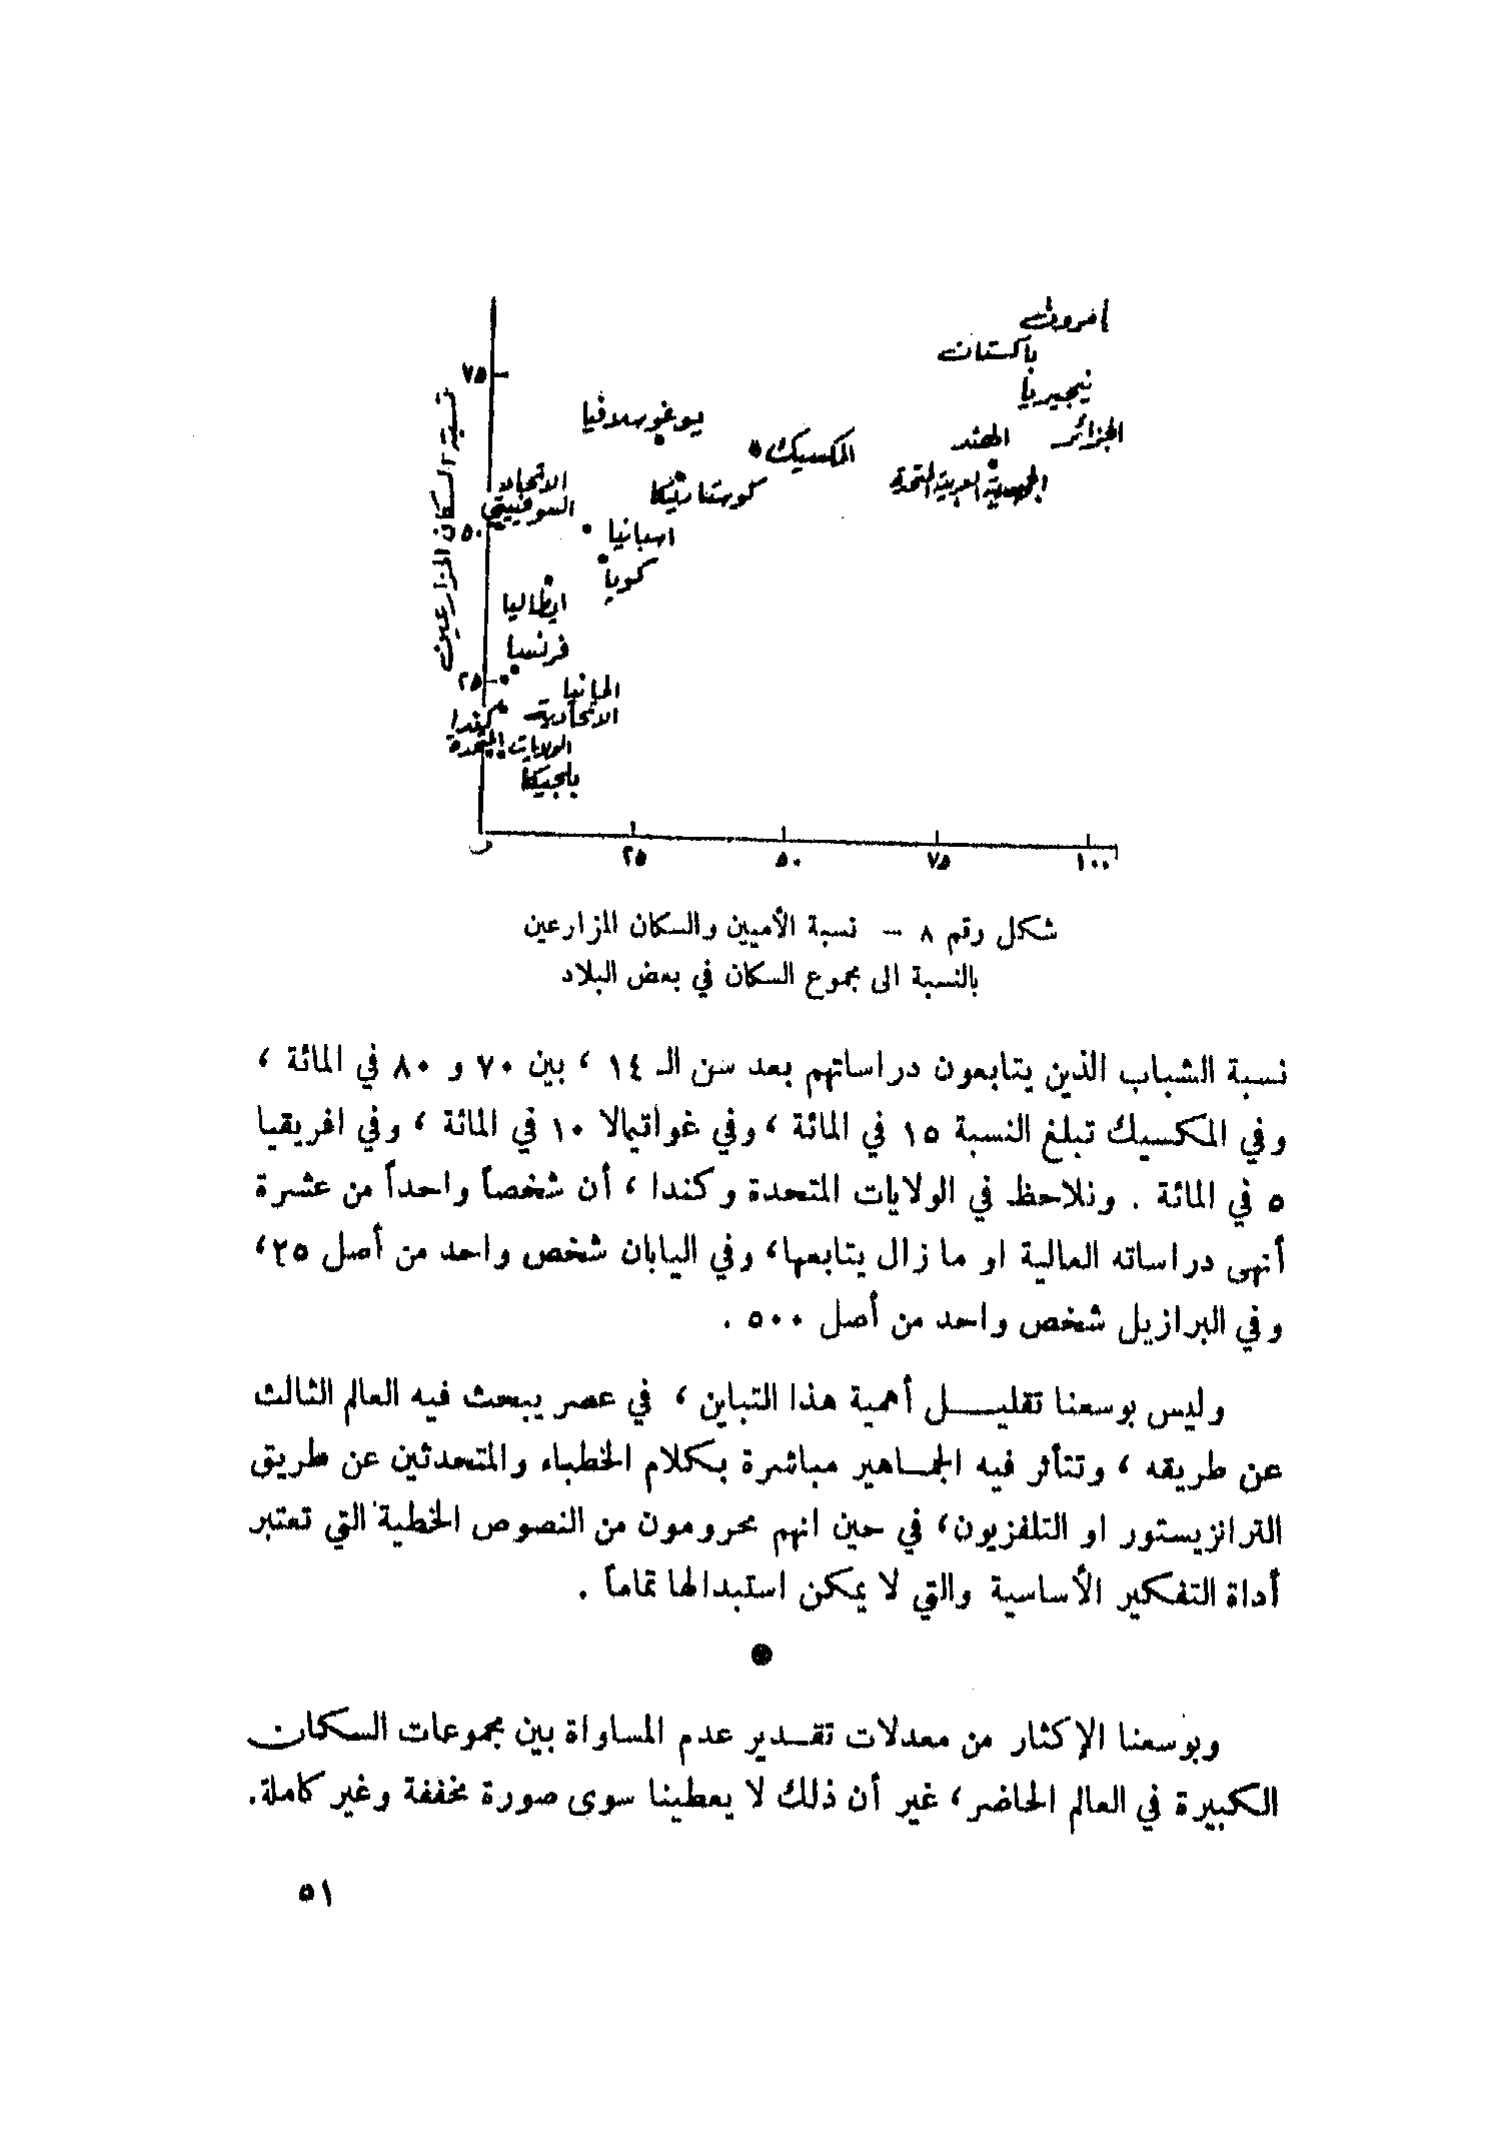 باكستان
٧٥
نيجيريا
يوغوسلافيا
الهند
الجزائر
المكسيك
نسبة السكان المزارعين
الاتحاد
السوفييتي
كوستاريكا
الجمهورية العربية المتحدة
٥٠
اسبانيا
كوبا
ايطاليا
فرنسا
٢٥
المانيا
الاتحادية
كندا
الولايات المتحدة
بلجيكا
٢٥
٥٠
٧٥
١٠٠
شكل رقم ٨ – نسبة الأميين والسكان المزارعين
بالنسبة الى مجموع السكان في بعض البلاد
نسبة الشباب الذين يتابعون دراساتهم بعد سن الـ ١٤ ، بين ٧٠ و ٨٠ في المائة ،
وفي المكسيك تبلغ النسبة ١٥ في المائة ، وفي غواتيمالا ١٠ في المائة ، وفي افريقيا
٥ في المائة . ونلاحظ في الولايات المتحدة وكندا ، أن شخصاً واحداً من عشرة
أنهى دراساته العالية او ما زال يتابعها، وفي اليابان شخص واحد من أصل ٢٥،
وفي البرازيل شخص واحد من أصل ٥٠٠ .
وليس بوسعنا تقليــل أهمية هذا التباين ، في عصر يبحث فيه العالم الثالث
عن طريقه ، وتتأثر فيه الجمـاهير مباشرة بكلام الخطباء والمتحدثين عن طريق
الترانزيستور او التلفزيون، في حين انهم محرومون من النصوص الخطية التي تعتبر
أداة التفكير الأساسية والتي لا يمكن استبدالها تماماً .
وبوسعنا الإكثار من معدلات تقـدير عدم المساواة بين مجموعات السكان
الكبيرة في العالم الحاضر، غير أن ذلك لا يعطينا سوى صورة مخففة وغير كاملة.
٥١